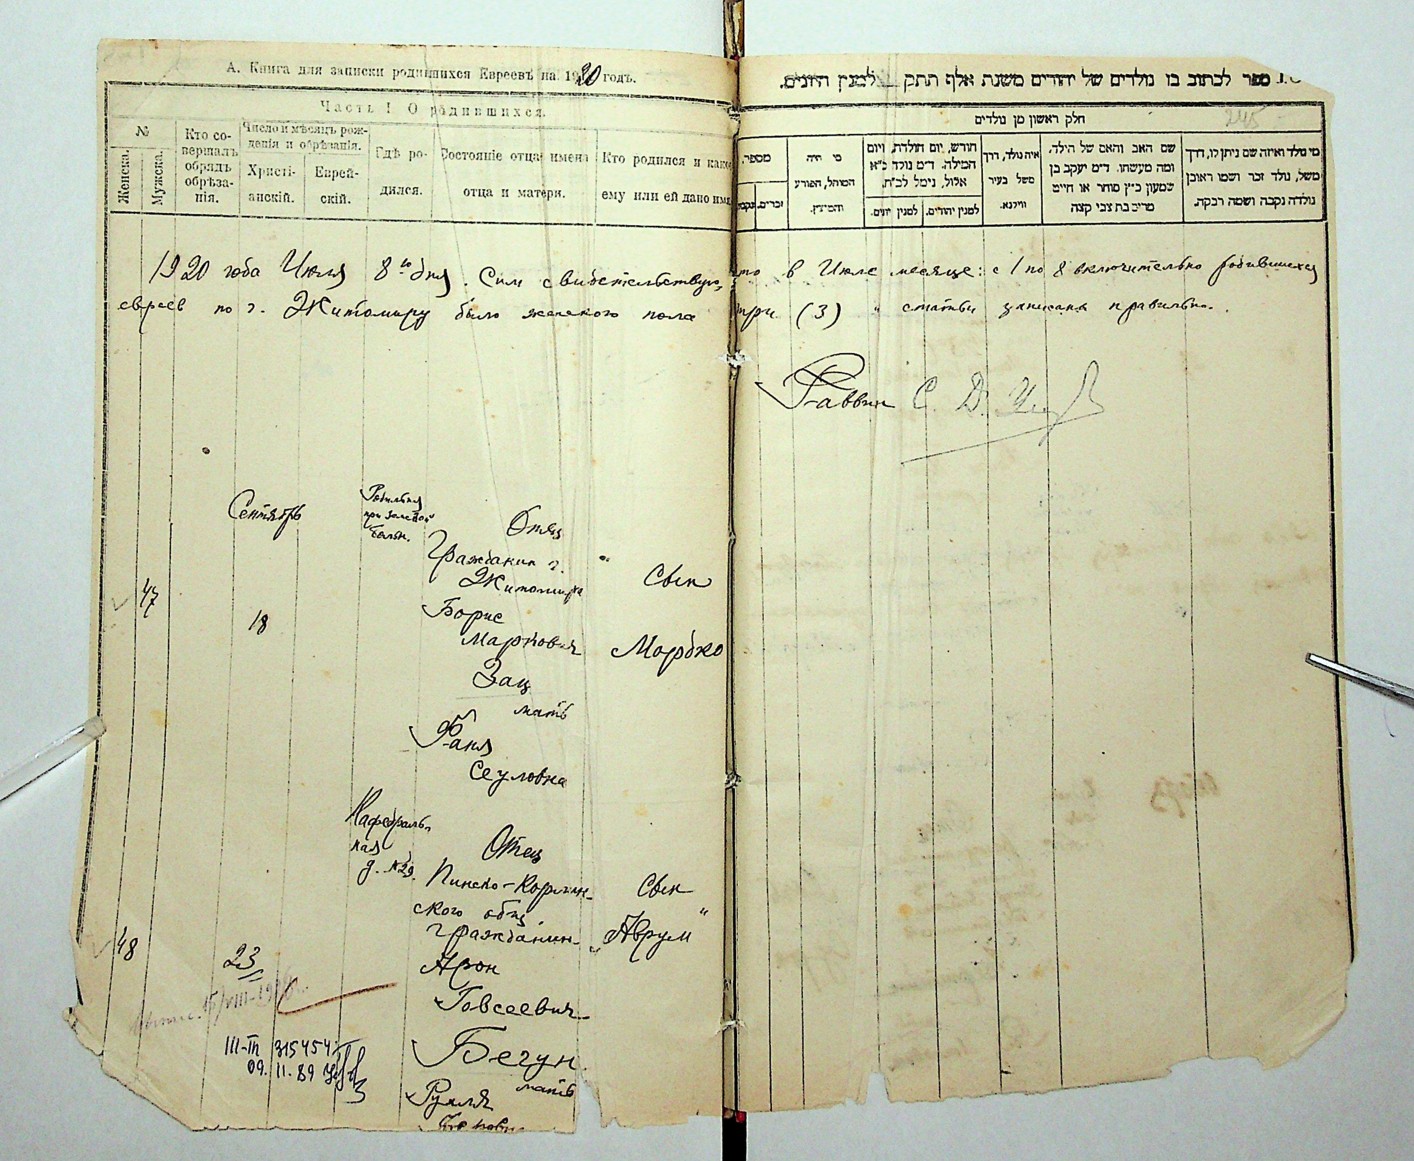 А. Книга для записки родившихся Евреевъ на 1920 годъ.
Часть I О родившихся.
№
Женска.
Мужска.
Кто со-
вершалъ
обрядъ
обрѣза-
нія.
Число и мѣсяцъ рож-
денія и обрѣзанія.
Христі-
анскій.
Еврей-
скій.
Гдѣ ро-
дился.
Состояніе отца, имена
отца и матери.
Кто родился и какое
ему или ей дано имя
ספר לכתוב בו נולדים של יהודים משנת אלף תתק למנין היונים.
חלק ראשון מן נולדים
מספר
זכרים.
נקבה
מי היה
המוהל, הפורע
והמוצץ.
חורש, יום תולדת, ויום
המילה. ד״מ נולד כ״א
אלול, נימל לכ״ח.
למנין יונים.
למנין יהודים.
איה נולד, דרך
משל בעיר
ווילנא.
שם האב והאם של הילד.
ומה מעשהו. ד״מ יעקב בן
שמעון כ״ץ סוחר או חייט
מרים בת צבי קצה
מי נולד ואיזה שם ניתן לו, דרך
משל, נולד זכר ושמו ראובן
נולדה נקבה ושמה רבקה.
245
1920 года Июля 8го дня. Сим свидетельствую, что в Июле месяце: с 1 по 8 включительно родившихся
евреев по г. Житомиру было женского пола три (3) статьи записаны правильно.
Раввин С. Д.
Сентябрь
Родильня
при
больн.
47
18
Отец
Гражданин г.
Житомира
Борис
Маркович
Зац
мать
Фаня
Сеуловна
Сын
Мордко
Кафедраль-
ная
д. №29.
48
23
Отец
Пинско-
ского общ.
гражданин
Арон
Говсеевич
Бегун
мать
Рухля
Сын
„Аврум“
15/VIII-19
III-ТП 315454
09. 11. 89